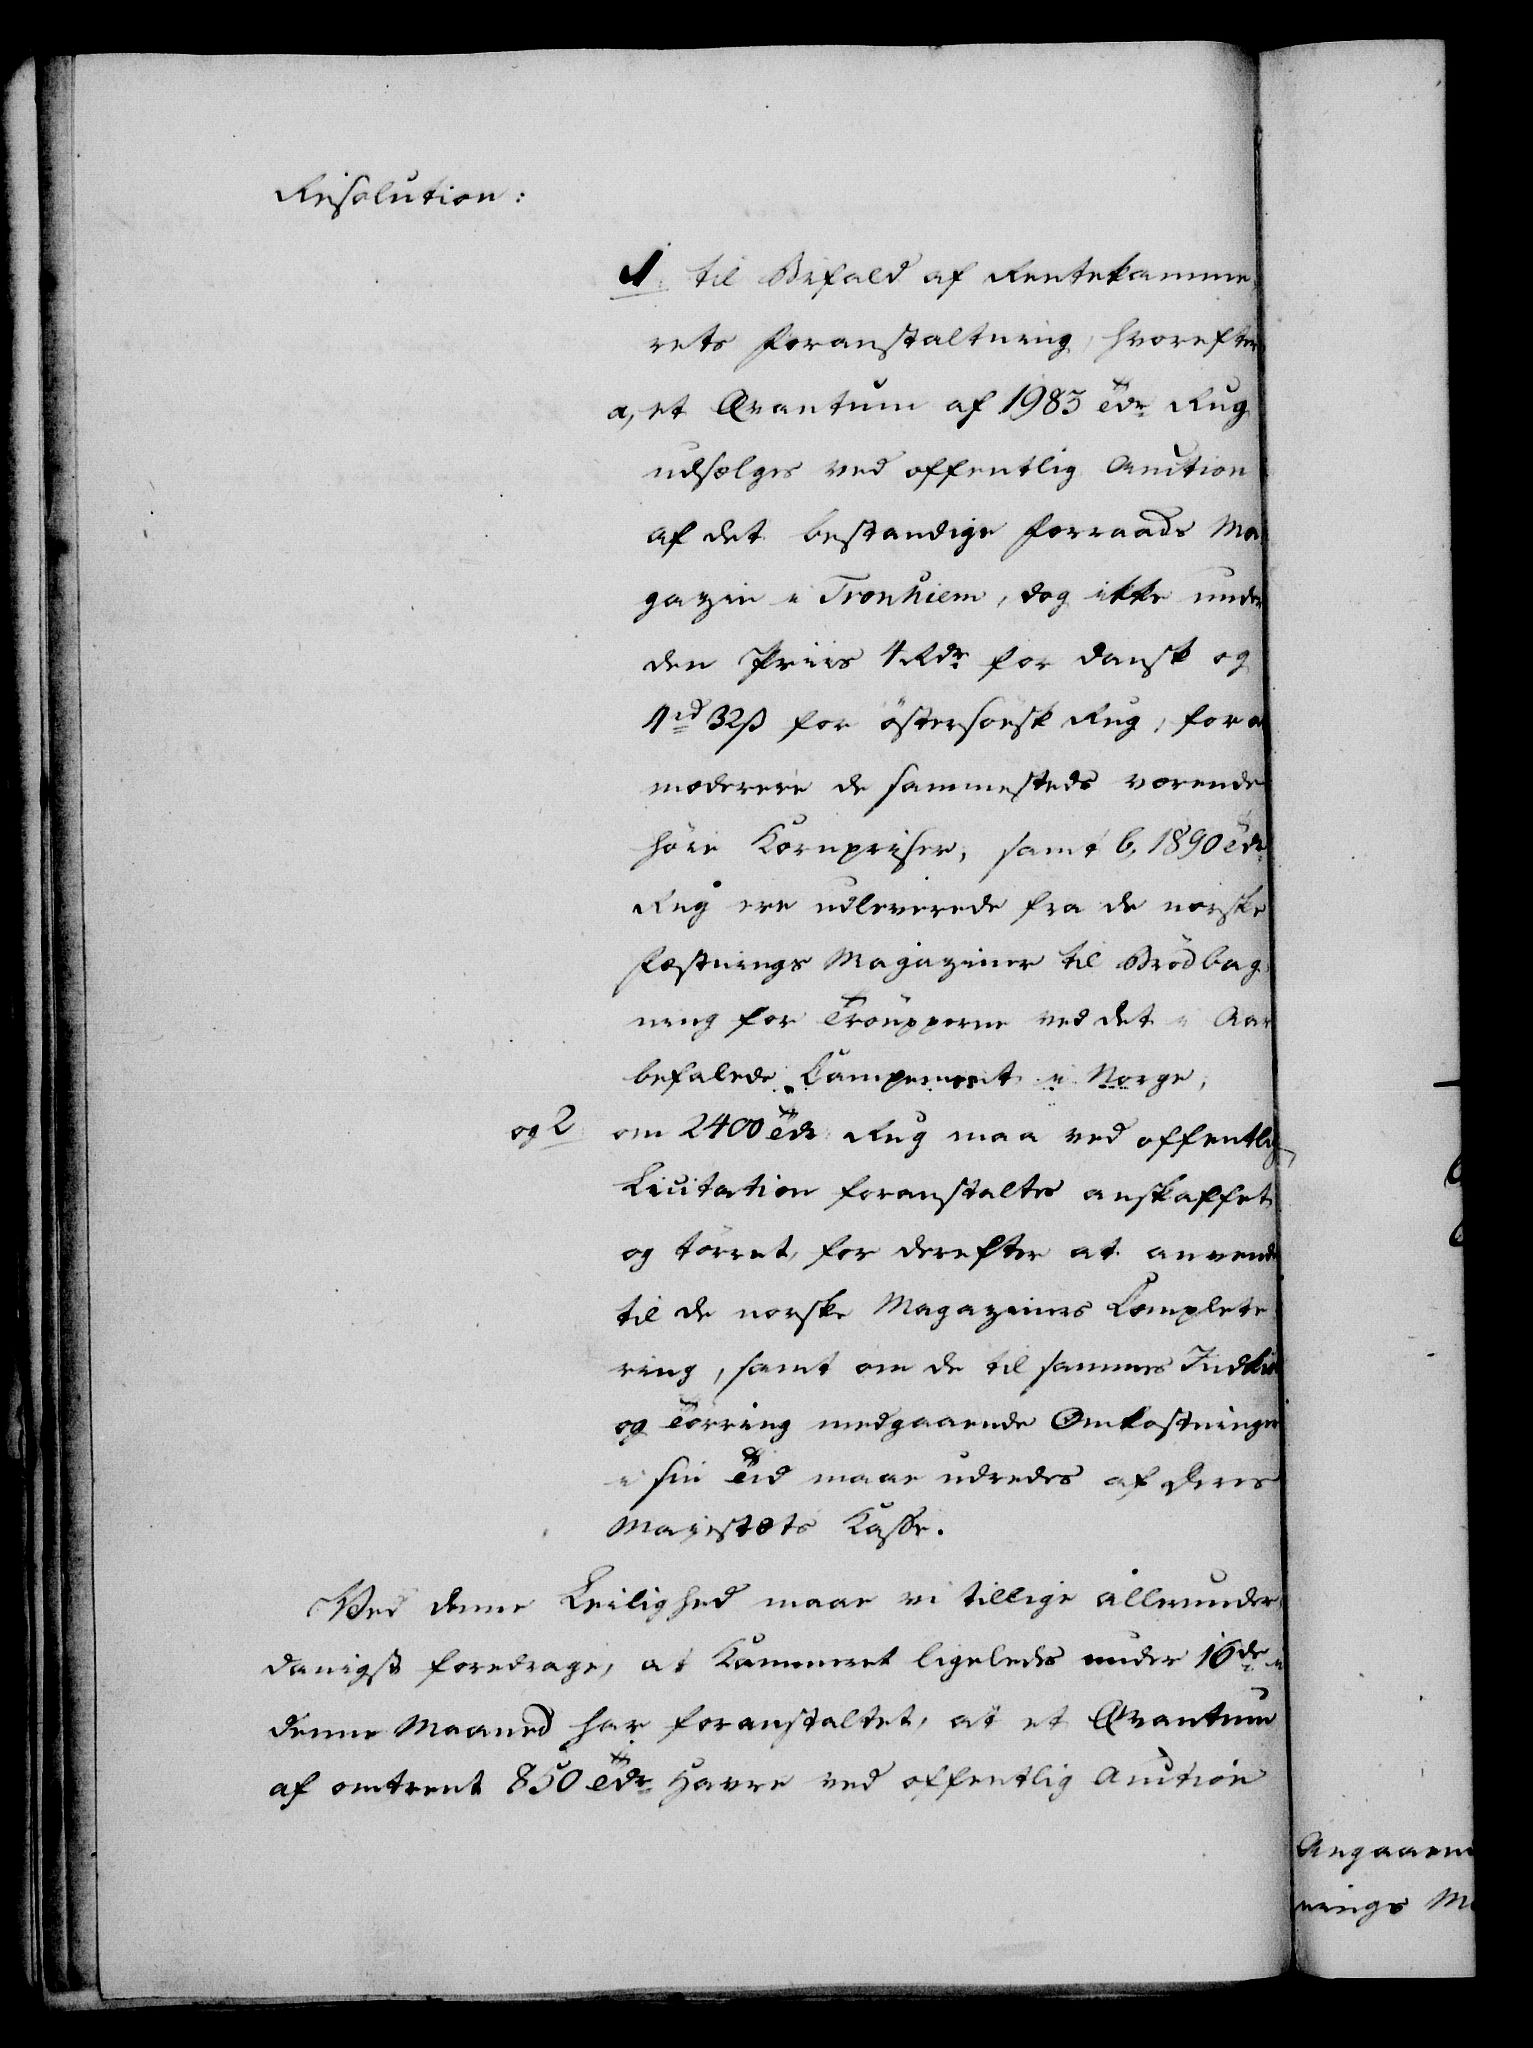 Resolution:
1. til Bifald af Rentekamme¬
rets Foranstaltning, hvorefter
a, et Qvantum af 1983 Tdr Rug
udsælges ved offentlig Auction
af det bestandige Forraads Ma¬
gazin i Tronhiem, dog ikke under
den Priis 4 Rdr for dansk og
4 rd 32 ß for östersöisk Rug, for a
moderere de sammesteds værende
höie Kornpriser, samt b, 1890 Tdr
Rug ere udleverede fra de norske
Fæstnings Magaziner til Brödbag¬
ning for Troupperne ved det i Aar
befalede Campement i Norge,
og 2 om 2400 Tdr Rug maa ved offentlig
Licitation foranstaltes anskaffet
og törret, for derefter at anvende
til de norske Magaziners Complete¬
ring, samt om de til sammes Indkiö
og Törring medgaaende Omkostninger
i sin Tid maae udredes af Deres
Majestæts Kasse.
Ved denne Leilighed maae vi tillige allerunder¬
danigst foredrage, at Kammeret ligeledes under 16de i
denne Maaned har foranstaltet, at et Qvantum
af omtrent 850 Tdr Havre ved offentlig Auction
Angaaend
nings Ma